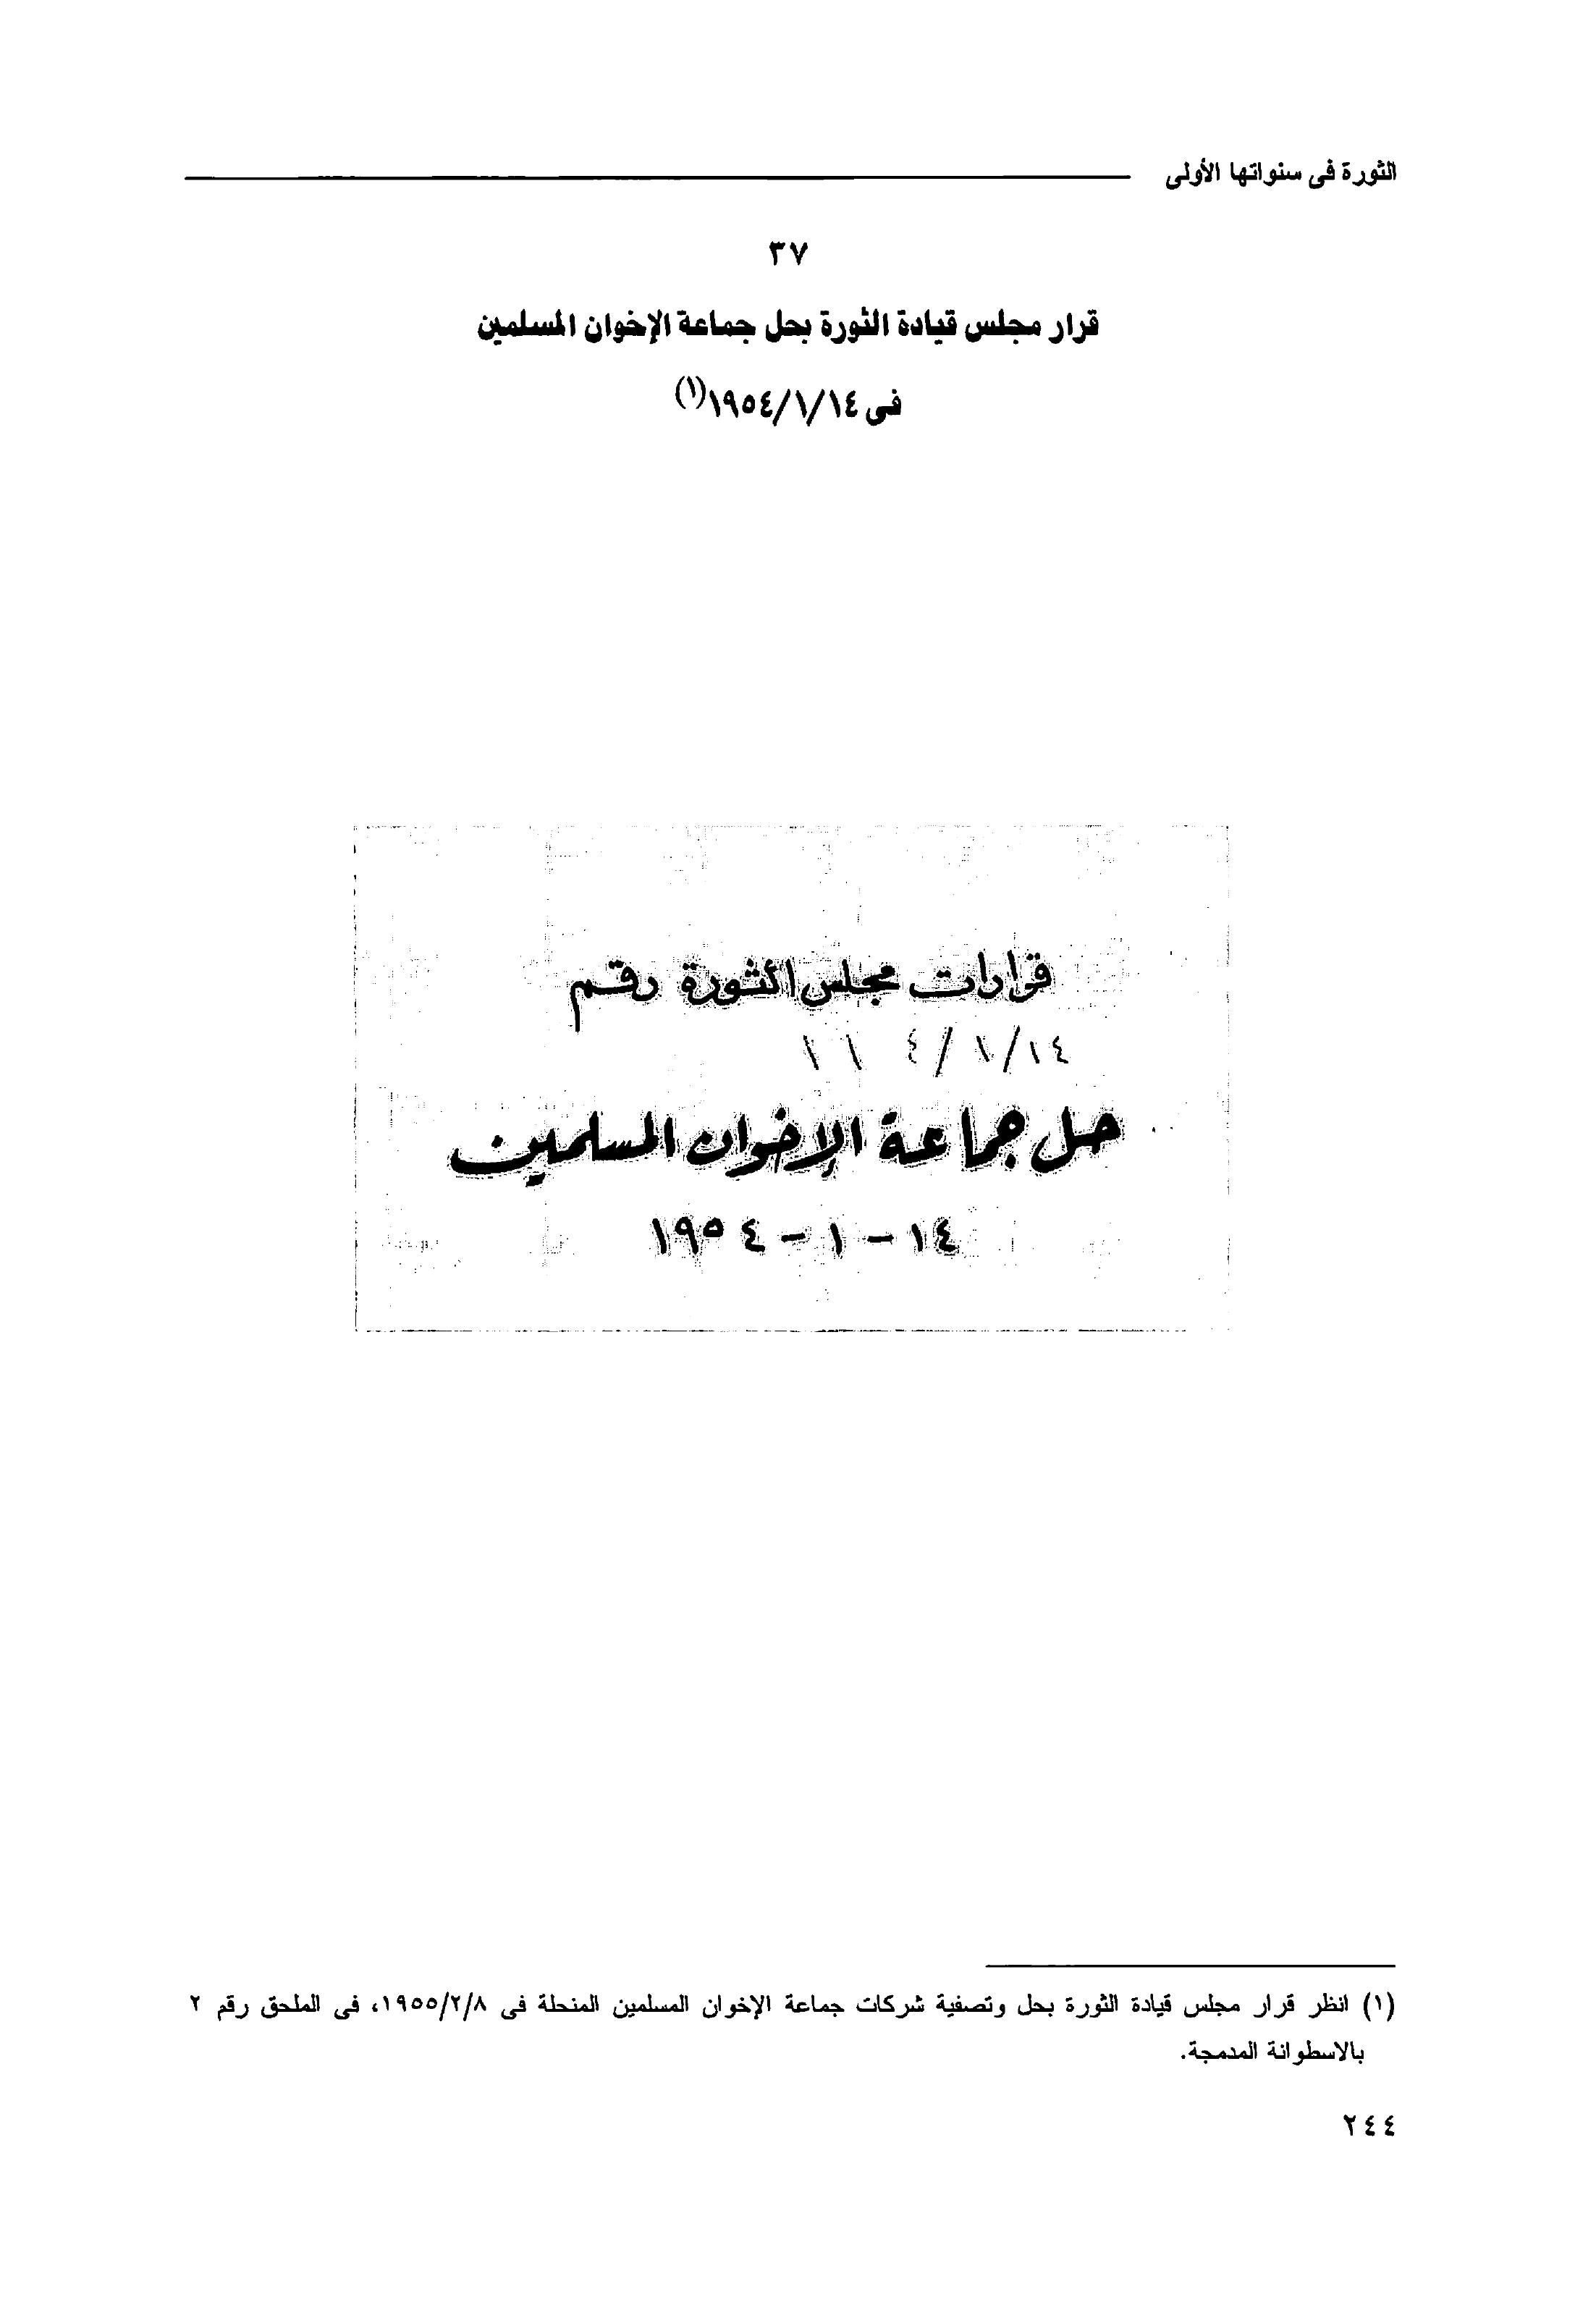 الثورة فى سنواتها الأولى
٣٧
قرار مجلس قيادة الثورة بحل جماعة الإخوان المسلمين
فى ١٩٥٤/١/١٤(١)
قرارات مجلس الثورة رقم
١٤/١/٤ ١١
حل جماعة الإخوان المسلمين
١٤ - ١ - ١٩٥٤
(١) انظر قرار مجلس قيادة الثورة بحل وتصفية شركات جماعة الإخوان المسلمين المنحلة فى ١٩٥٥/٢/٨، فى الملحق رقم ٢
بالاسطوانة المدمجة.
٢٤٤